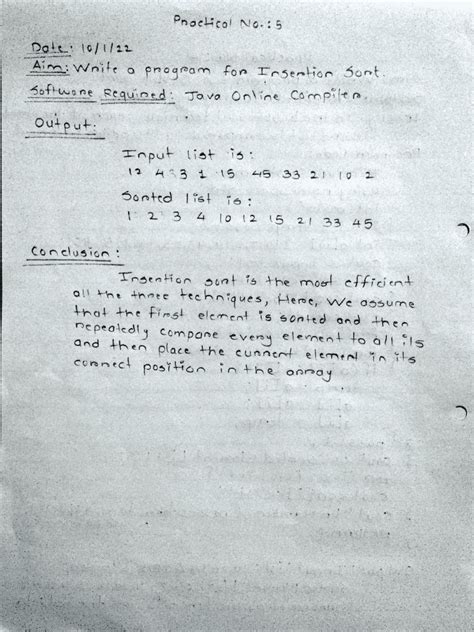 Practical No.: 5
Date: 10/1/22
Aim: Write a program for Insertion Sort.
Software Required: Java Online Compiler.
Output:
Input list is:
12 4 3 1 15 45 33 21 10 2
Sorted list is:
1 2 3 4 10 12 15 21 33 45
Conclusion:
Insertion sort is the most efficient
all the three techniques, Here, We assume
that the first element is sorted and then
repeatedly compare every element to all its
and then place the current element in its
correct position in the array